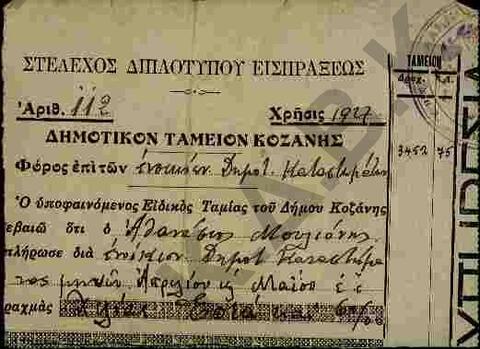 ΣΤΕΛΕΧΟΣ ΔΙΠΛΟΤΥΠΟΥ ΕΙΣΠΡΑΞΕΩΣ
Ἀριθ. 112 Χρῆσις 1927
ΔΗΜΟΤΙΚΟΝ ΤΑΜΕΙΟΝ ΚΟΖΑΝΗΣ
Φόρος ἐπὶ τῶν ἐνοικίων Δημοτ. Καταστημάτων
Ὁ ὑποφαινόμενος Εἰδικὸς Ταμίας τοῦ Δήμου Κοζάνης
εβαιῶ ὅτι ὁ Ἀθανάσιος
πλήρωσε διὰ ἐνοίκιον Δημοτ Καταστήμα
τος μηνῶν Ἀπριλίου Μαΐου
ραχμὰς
ΤΑΜΕΙΟΝ
Δραχ. Λ.
3452 75
ΥΠΗΡΕΣΙΑ